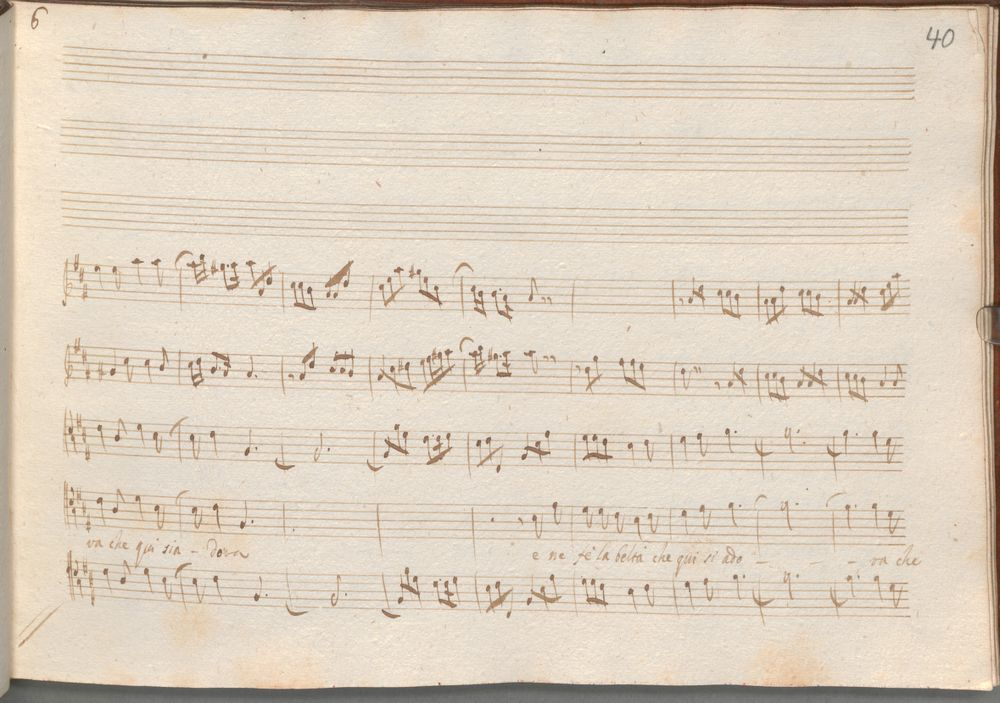 6
40
va che qui sia - dora e ne fè la beltà che qui si ado - - - va che